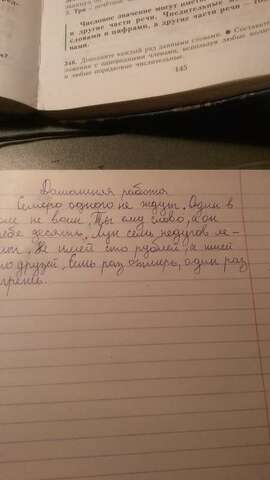 3. Три –
Числовое значение могут
и другие части речи. Числительные
словами и цифрами, а другие части речи –
вами.
248. Дополните каждый ряд данными словами. • Составьте
ложения с однородными членами, используя любые
и любые порядковые числительные.
145
Домашняя работа
Семеро одного не ждут. Один в
оле не воин. Ты ему слово, а он
ебе десять. Лук семь недугов ле-
чит. Не имей сто рублей, а имей
то друзей. Семь раз отмерь, один раз
трежь.